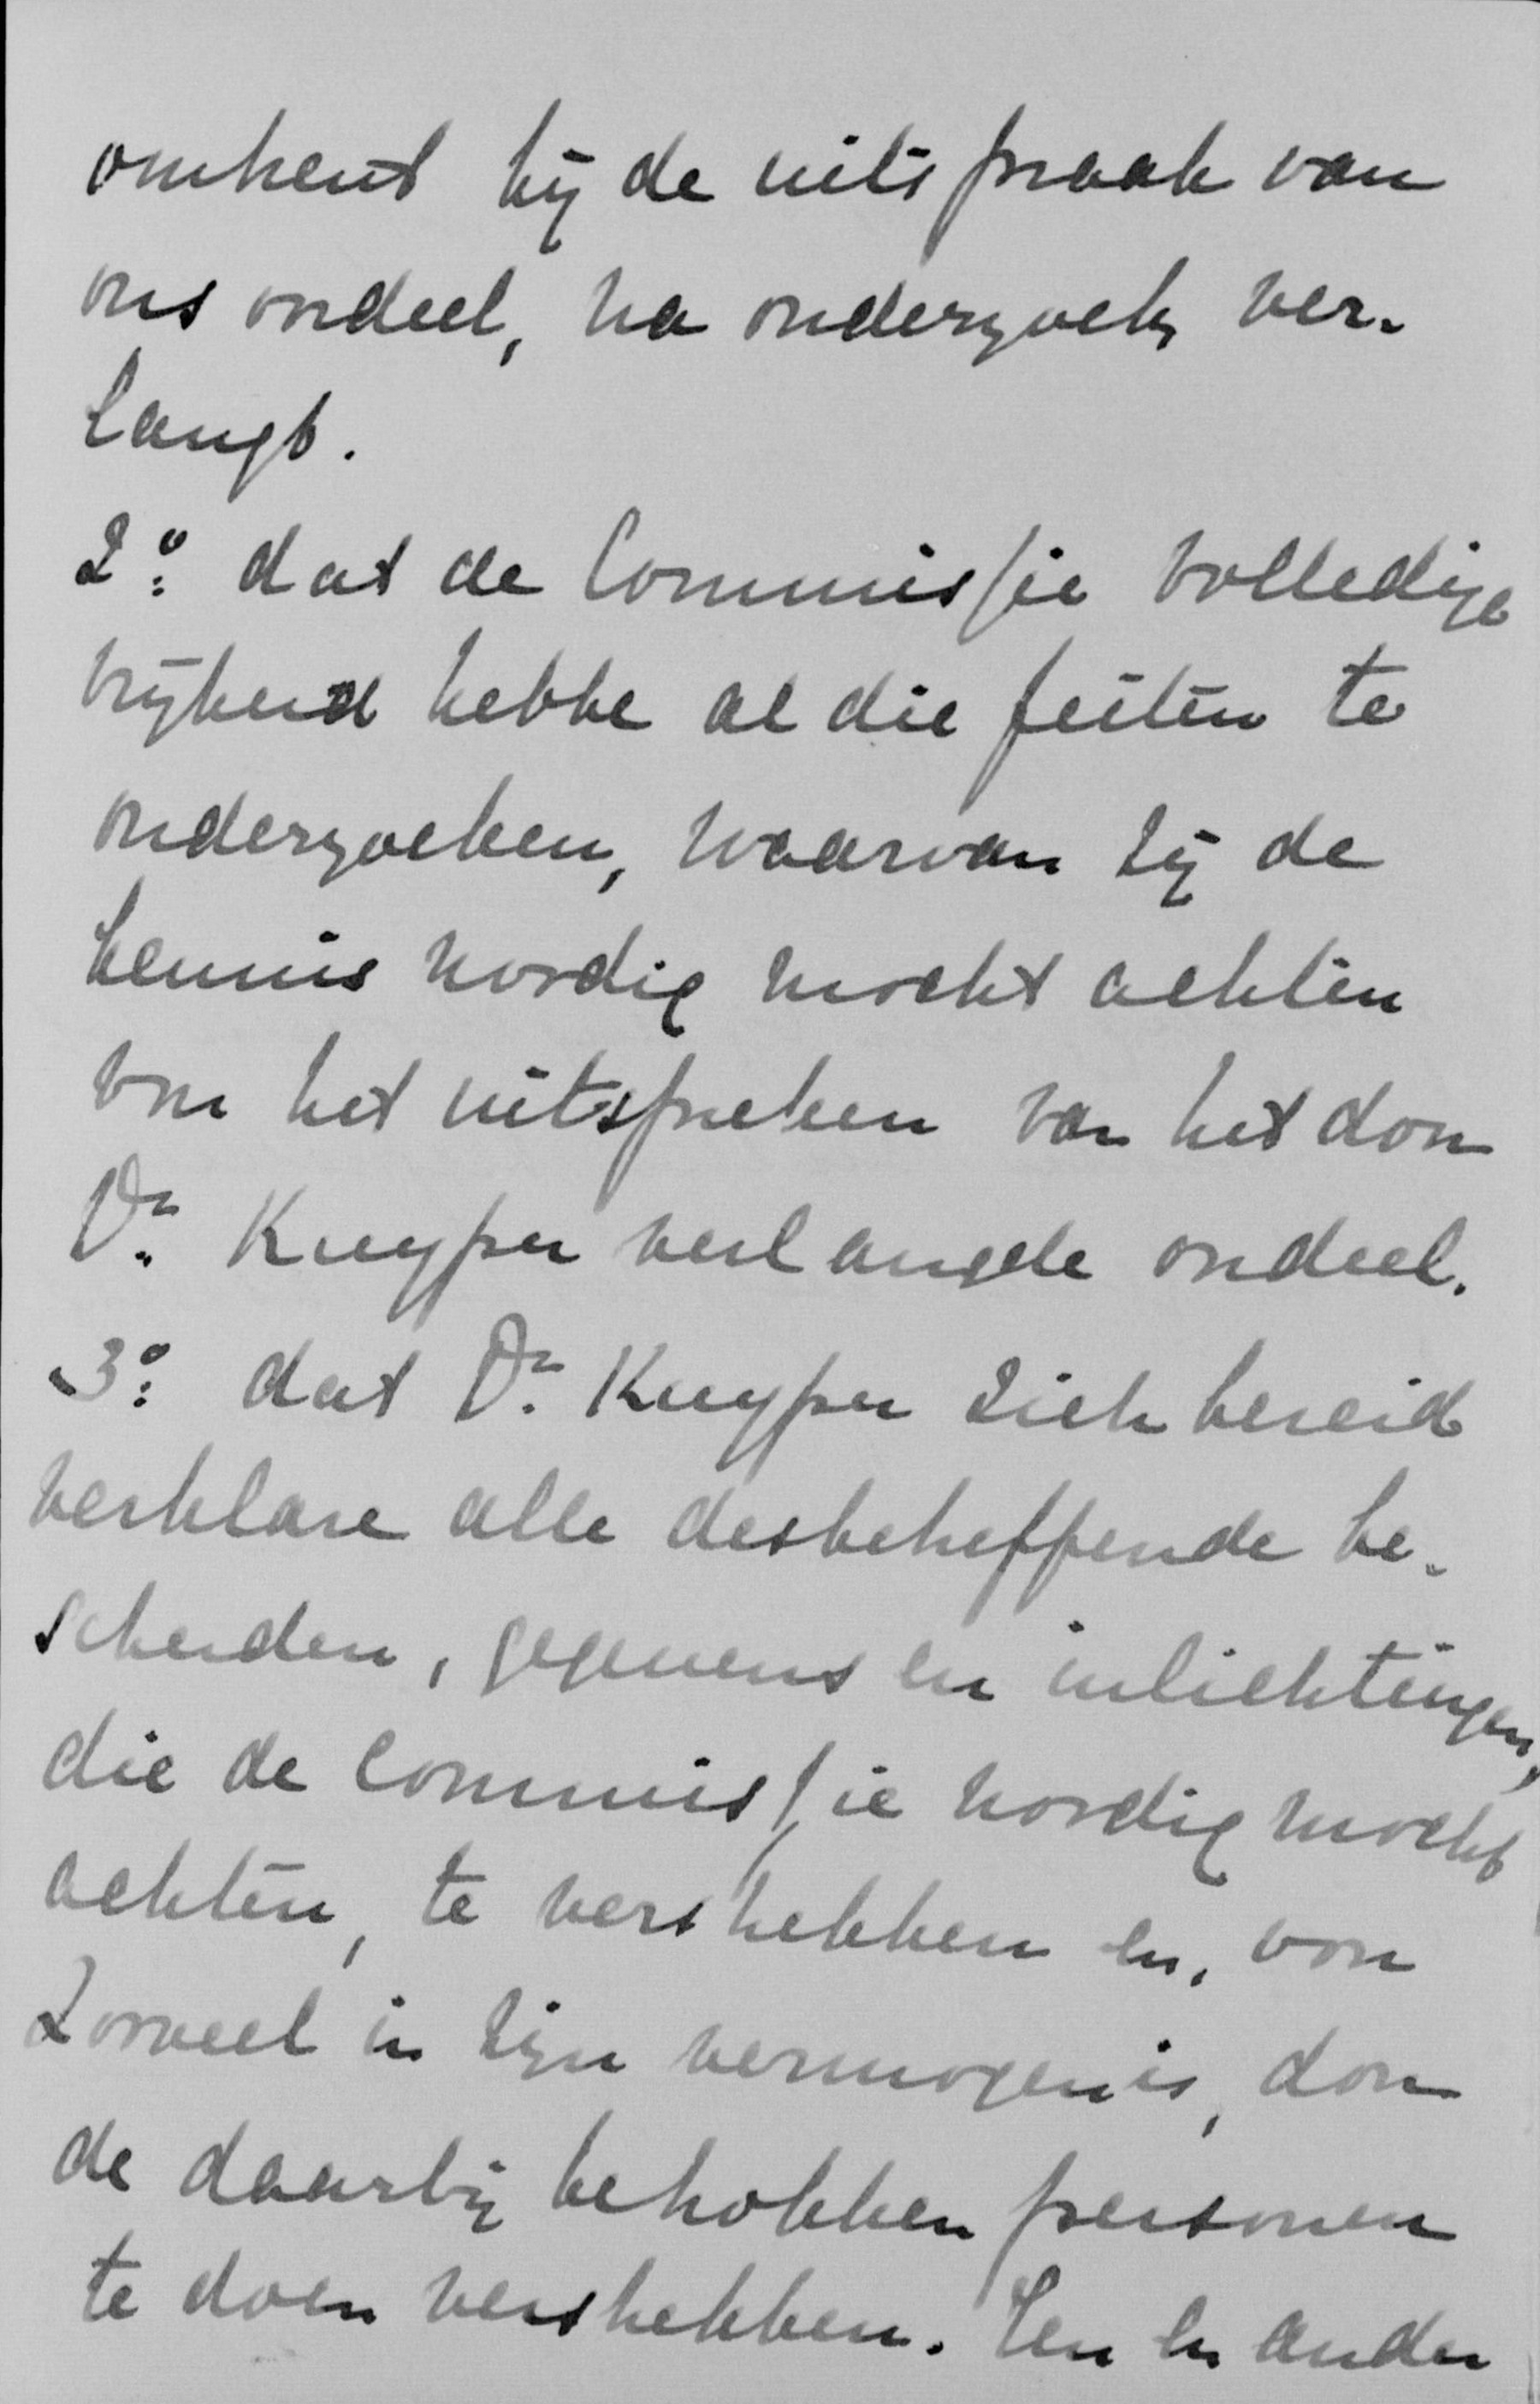 omtrent hij de uitspraak van
ons oordeel, na onderzoek ver-
langt.
2o: dat de Commissie volledige
vrijheid hebbe al die feiten te
onderzoeken, waarvan zij de
kennis noodig mocht achten
voor het uitspreken van het door
Dr. Kuyper verlangde oordeel.
3o: dat Dr. Kuyper zich bereid
verklare alle desbetreffende be-
scheiden, gegevens en inlichtingen,
die de Commissie noodig mocht
achten, te verstrekken en, voor
zooveel in zijn vermogen is, door
de daarbij betrokken personen
te doen verstrekken. Een en ander